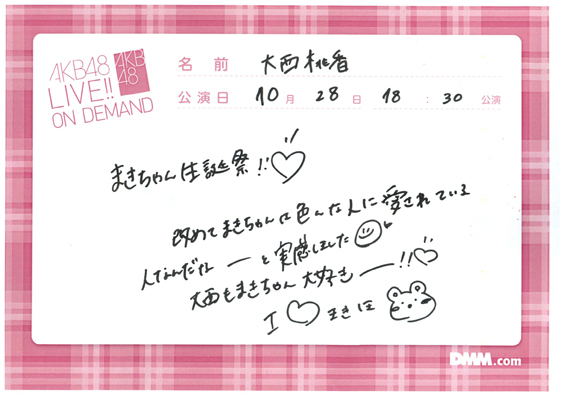 AKB48
LIVE!!
ON DEMAND
AKB
48
名前 大西桃香
公演日 10月 28日 18:30 公演
まきちゃん生誕祭!!♡
改めてまきちゃんは色んな人に愛されている
人なんだなーと実感しました
大西もまきちゃん大好きー!!♡
I ♡ まきほ
DMM.com